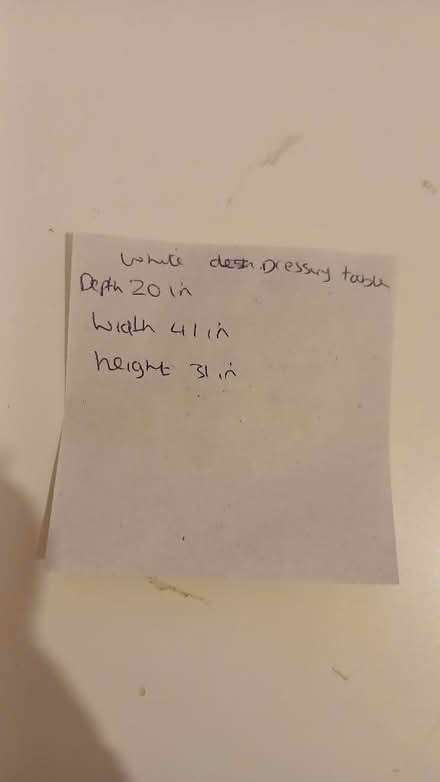 white desk Dressing table
Depth 20 in
Width 41 in
height 31 in